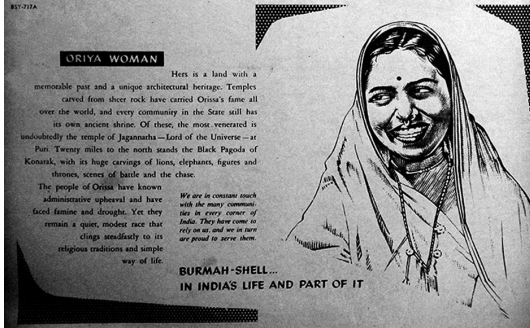 BSY-717A
ORIYA WOMAN
Hers is a land with a
memorable past and a unique architectural heritage. Temples
carved from sheer rock have carried Orissa's fame all
over the world, and every community in the State still has
its own ancient shrine. Of these, the most venerated is
undoubtedly the temple of Jagannatha—Lord of the Universe—at
Puri. Twenty miles to the north stands the Black Pagoda of
Konarak, with its huge carvings of lions, elephants, figures and
thrones, scenes of battle and the chase.
The people of Orissa have known
administrative upheaval and have
faced famine and drought. Yet they
remain a quiet, modest race that
clings steadfastly to its
religious traditions and simple
way of life.
We are in constant touch
with the many communi-
ties in every corner of
India. They have come to
rely on us, and we in turn
are proud to serve them.
BURMAH-SHELL...
IN INDIA'S LIFE AND PART OF IT